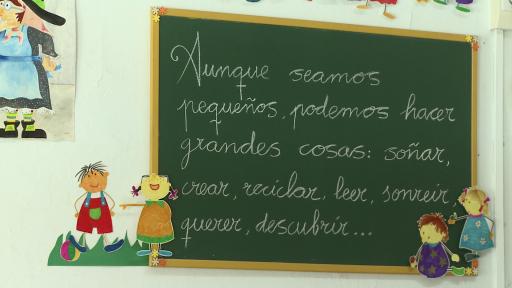 Aunque seamos
pequeños, podemos hacer
grandes cosas: soñar,
crear, reciclar, leer, sonreir,
querer, descubrir...